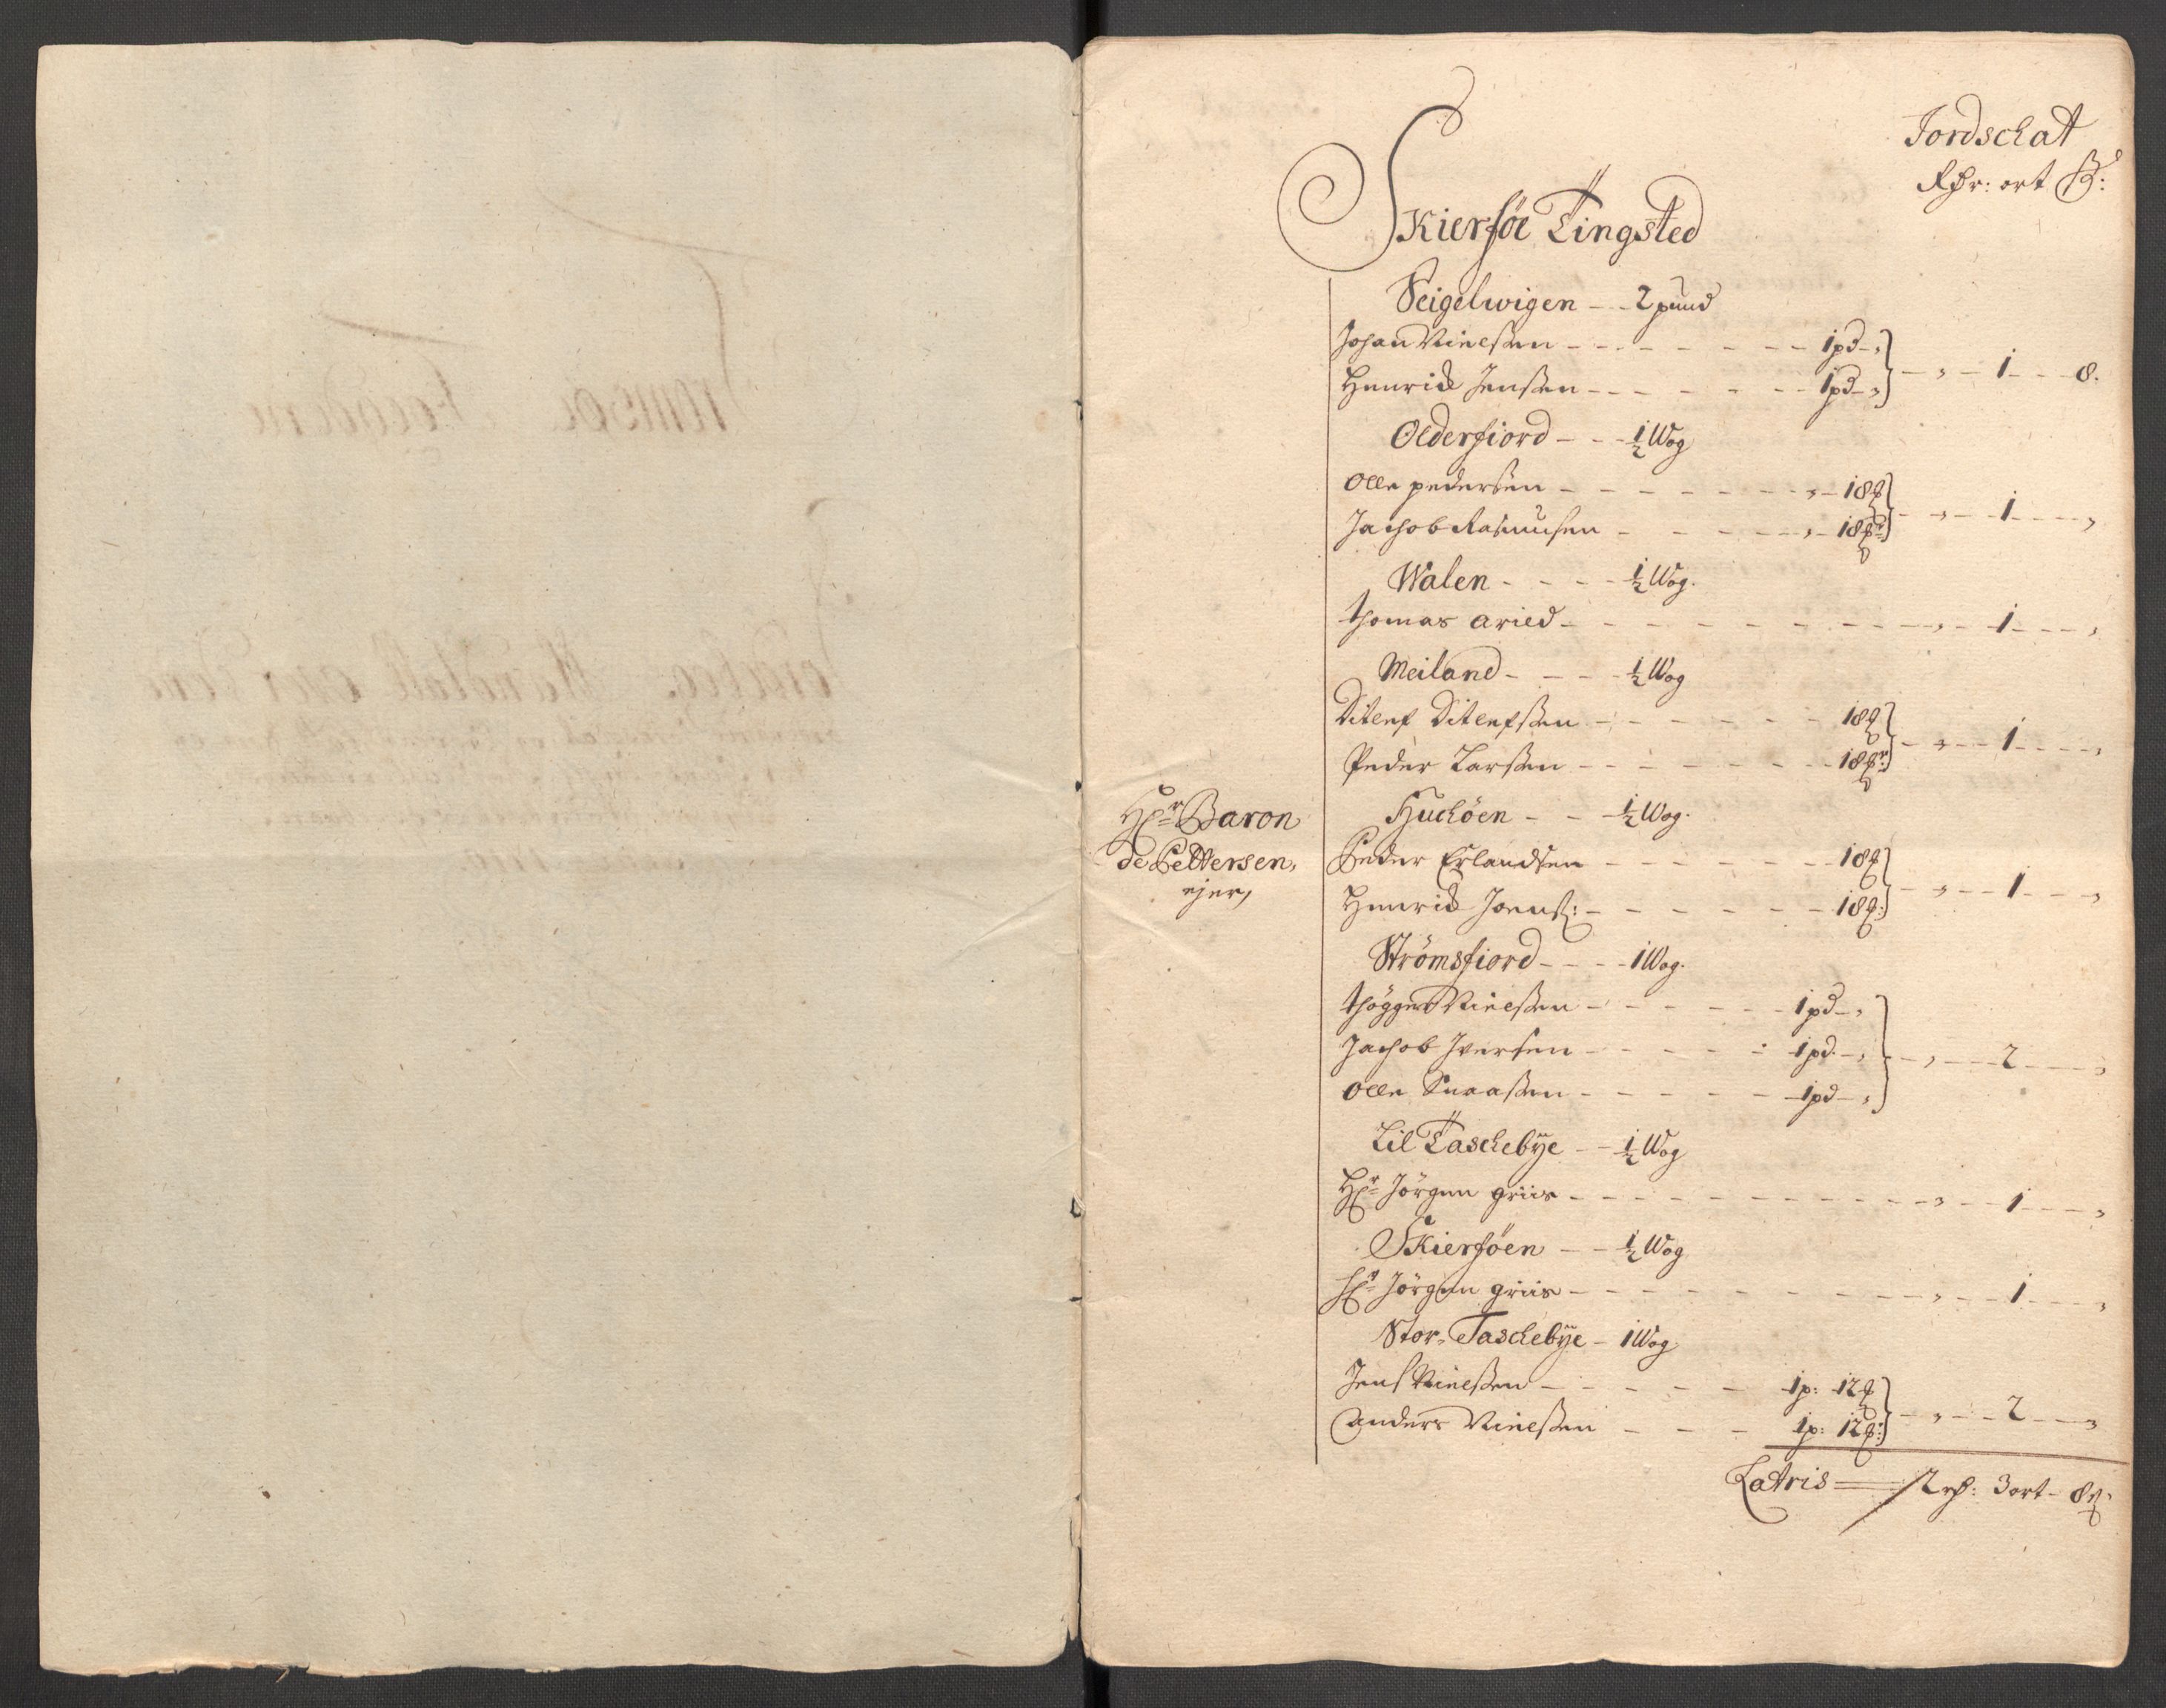 Jordschat
Rdr: ort ß:
Skierföe Tingsted
Seigelwigen - - 2 pund
Johan Nielsen - - - - - - - 1 pd - „
Henrich Jensen - - - - - - - 1 pd - „ } - „ - 1 - - 8.
Olderfiord - - - ½ Wog
Olle pedersen - - - - - - - „ - 18 ℔
Jachob Rasmusen - - - - - „ - 18 ℔ } - „ - 1 - - „
Walen - - - - ½ Wog.
Thomas Aried - - - - - - - - - „ - 1 - - „
Meiland - - - - ½ Wog
Ditlef Ditlefsen - - - - - - 18 ℔
Peder Larsen - - - - - - - 18 ℔ } - „ - 1 - - „
Hr Baron
de Pettersen,
ejer,
Huchöen - - ½ Wog.
Peder Erlandsen - - - - - - - 18 ℔
Henrich Joens: - - - - - - 18 ℔ } - „ - 1 - - „
Strömsfiord - - - - 1 Wog.
Thögger Nielsen - - - - - - 1 pd - „
Jachob Iversen - - - - - 1 pd - „ } - „ - 2 - - „
Olle - - - - - - 1 pd - „
Lil Taschebÿe - - ½ Wog
Hr Jörgen griis - - - - - - - - - „ - 1 - - „
Skierföen - - ½ Wog
Hr Jörgen griis - - - - - - - - - „ - 1 - - „
Stor-Taschebÿe - 1 Wog
Jens Nielsen - - - - - 1 p: 12 ℔
Anders Nielsen - - - 1 p: 12 ℔ } - „ - 2 - - „
Latris = 2 rd: 3 ort - 8 ß